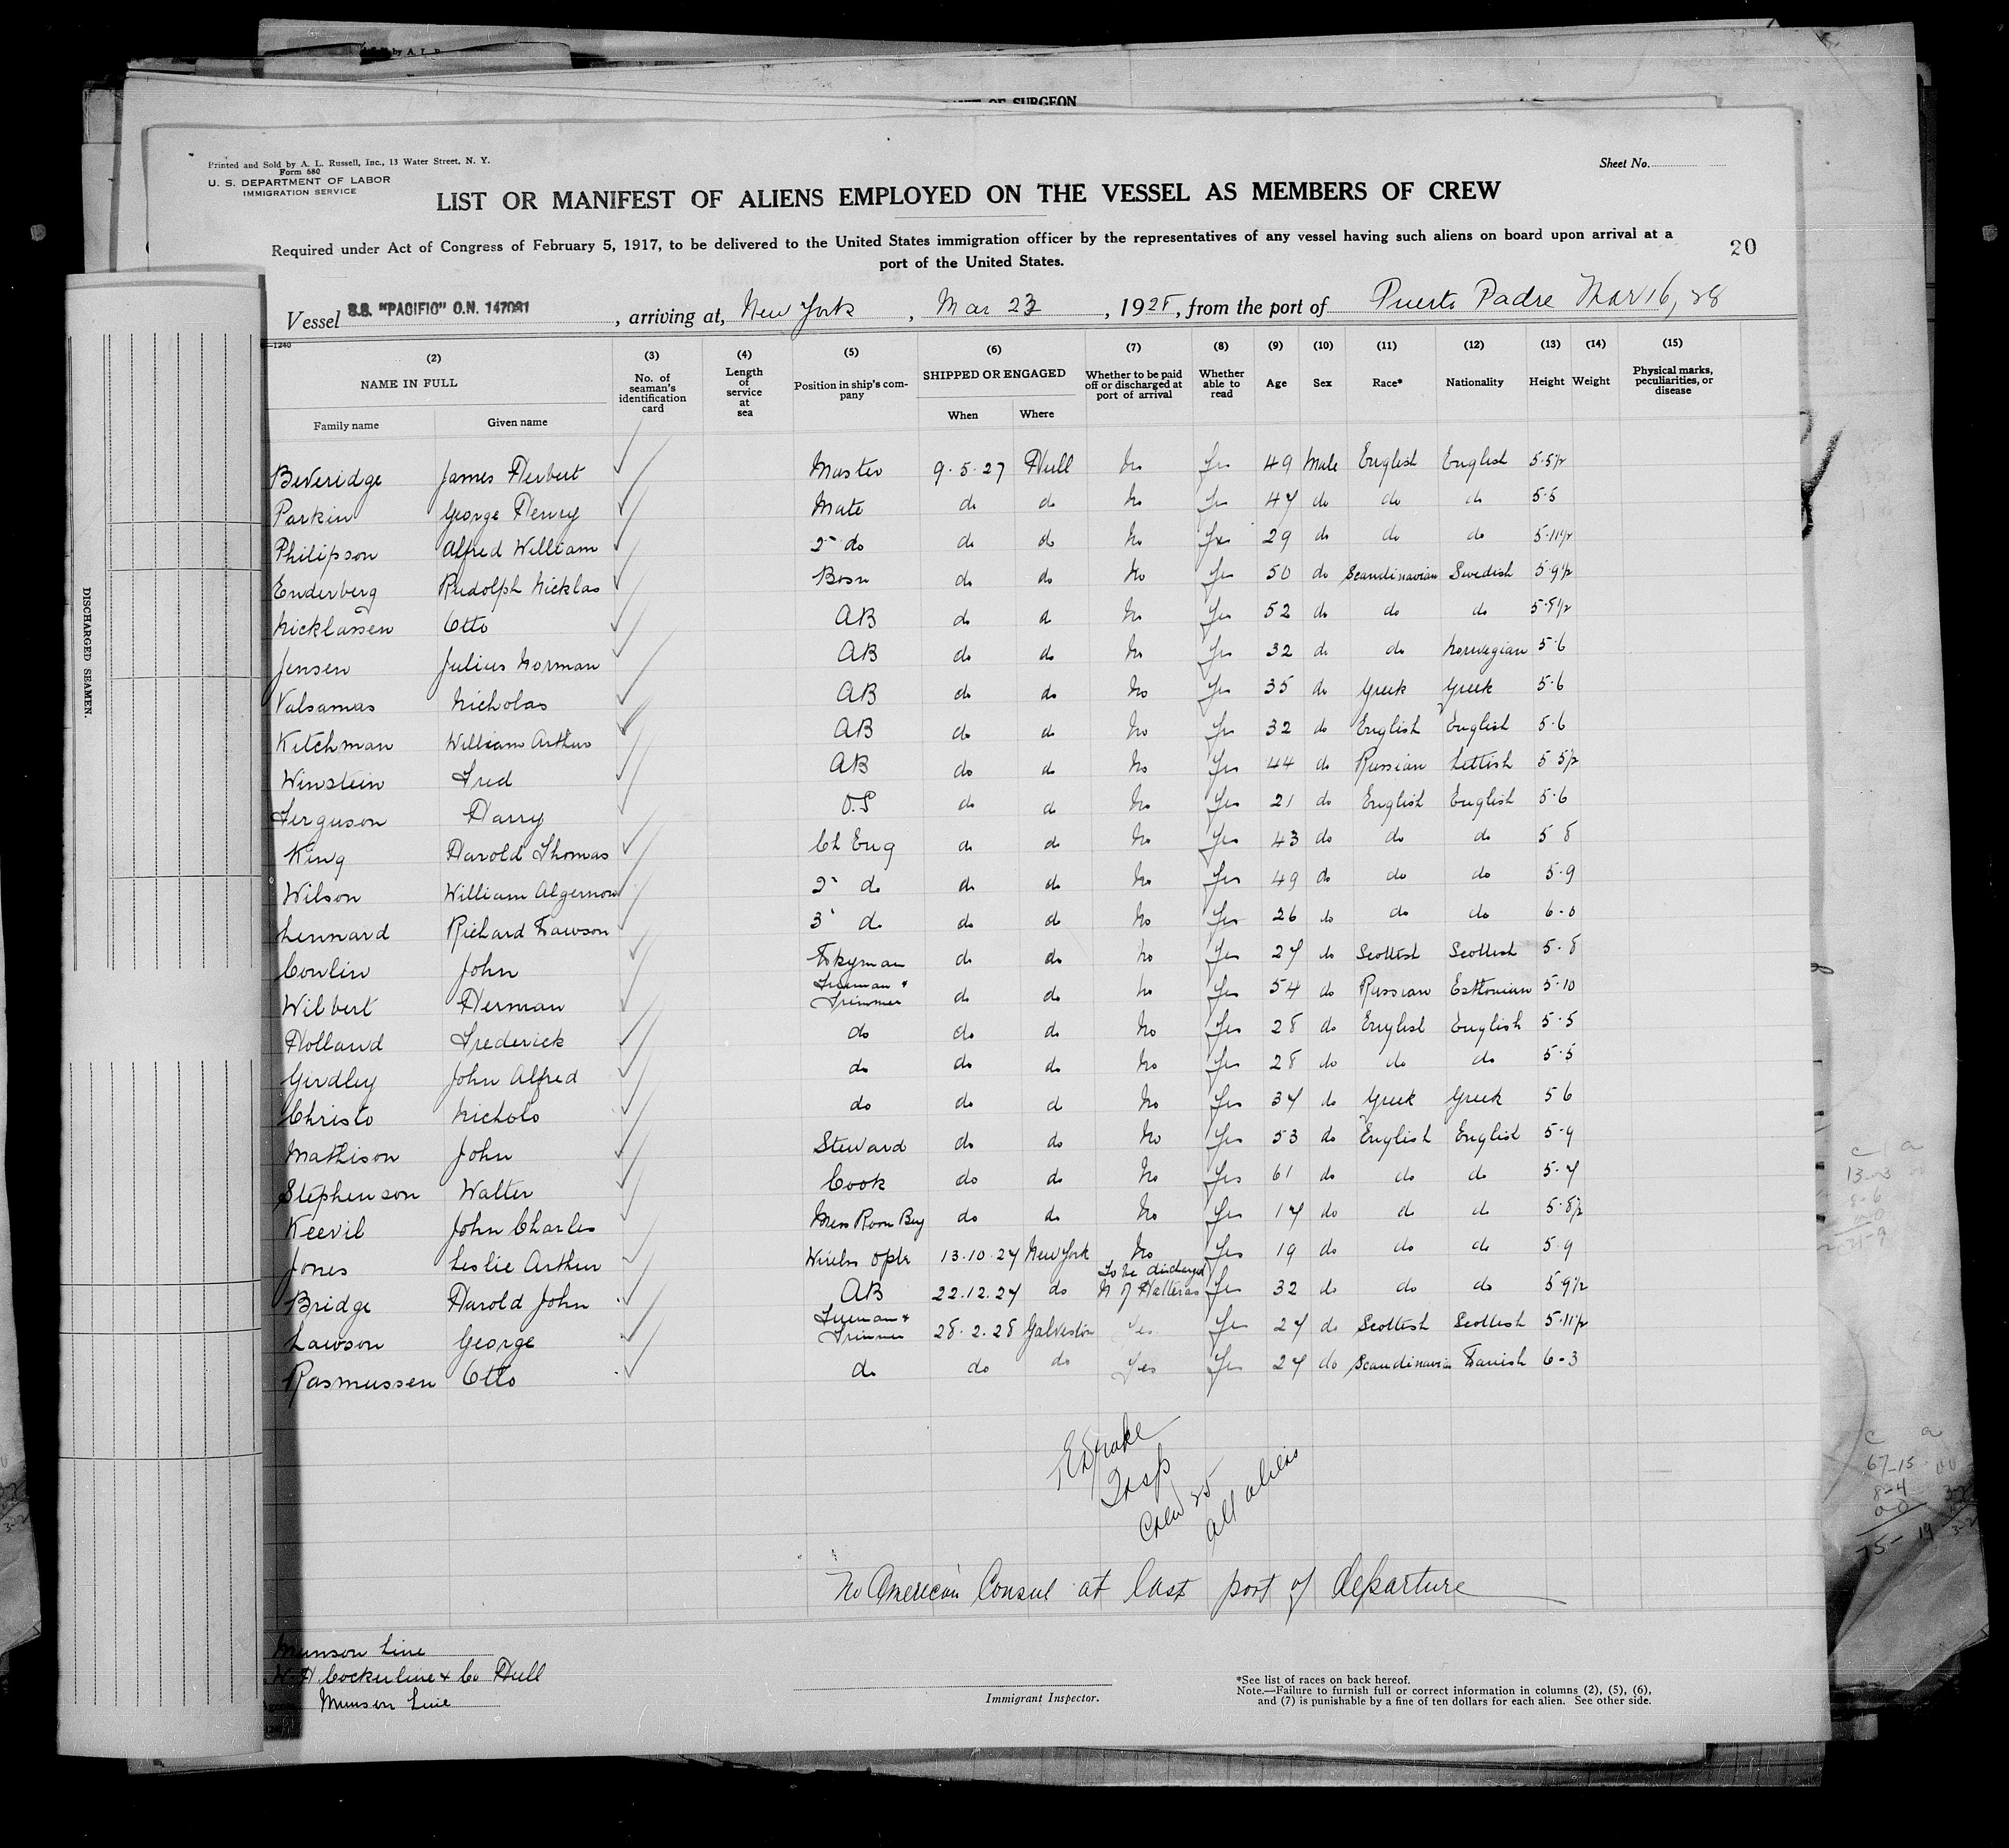 by A. L. R
OF SURGEON
Printed and Sold by A. L. Russell, Inc., 13 Water Street, N. Y.
Form 680
U. S. DEPARTMENT OF LABOR
IMMIGRATION SERVICE
Sheet No.
LIST OR MANIFEST OF ALIENS EMPLOYED ON THE VESSEL AS MEMBERS OF CREW
Required under Act of Congress of February 5, 1917, to be delivered to the United States immigration officer by the representatives of any vessel having such aliens on board upon arrival at a
port of the United States.
20
Vessel S.S. "PACIFIC" O.N. 147081, arriving at, New York, Mar 23, 1928, from the port of Puerto Padre Mar 16, 28
—1240
(2) (3) (4) (5) (6) (7) (8) (9) (10) (11) (12) (13) (14) (15)
NAME IN FULL No. of seaman's identification card Length of service at sea Position in ship's company SHIPPED OR ENGAGED Whether to be paid off or discharged at port of arrival Whether able to read Age Sex Race* Nationality Height Weight Physical marks, peculiarities, or disease
Family name Given name When Where
Beveridge James Herbert Master 9.5.27 Hull No Yes 49 Male English English 5.5½
Parkin George Henry Mate do do No Yes 47 do do do 5.5
Philipson Alfred William 2" do do do No Yes 29 do do do 5.11½
Enderberg Rudolph Nicklas Bosn do do No Yes 50 do Scandinavian Swedish 5.9½
Nicklassen Otto AB do do No Yes 52 do do do 5.8½
Jensen Julius Norman AB do do No Yes 32 do do Norwegian 5.6
Valsamas Nicholas AB do do No Yes 35 do Greek Greek 5.6
Kitchman William Arthur AB do do No Yes 32 do English English 5.6
Winstein Fred AB do do No Yes 44 do Russian Lettish 5 5½
Ferguson Harry O.S do do No Yes 21 do English English 5.6
King Harold Thomas Ch Eng do do No Yes 43 do do do 5 8
Wilson William Algernon 2" do do do No Yes 49 do do do 5.9
Lennard Richard Dawson 3" do do do No Yes 26 do do do 6-0
Conlin John Dkyman do do No Yes 27 do Scottish Scottish 5.8
Wilbert Herman Fireman & Trimmer do do No Yes 54 do Russian Esthonian 5.10
Holland Frederick do do do No Yes 28 do English English 5.5
Girdley John Alfred do do do No Yes 28 do do do 5.5
Christo Nicholo do do do No Yes 37 do Greek Greek 5 6
Mathison John Steward do do No Yes 53 do English English 5.9
Stephenson Walter Cook do do No Yes 61 do do do 5.7
Keevil John Charles Mess Room Boy do do No Yes 17 do do do 5.8½
Jones Leslie Arthur Wireless Optr 13.10.27 New York No Yes 19 do do do 5.9
Bridge Harold John AB 22.12.27 do To be discharged N of Hatteras Yes 32 do do do 5.9½
Lawson George Fireman & Trimmer 28.2.28 Galveston Yes Yes 27 do Scottish Scottish 5.11½
Rasmussen Otto do do do Yes Yes 27 do Scandinavian Danish 6-3
DISCHARGED SEAMEN.
Insp
Crew 25
All aliens
No American Consul at last port of departure
Munson Line
Cockerline & Co Hull
Munson Line
Immigrant Inspector.
*See list of races on back hereof.
Note.—Failure to furnish full or correct information in columns (2), (5), (6),
and (7) is punishable by a fine of ten dollars for each alien. See other side.